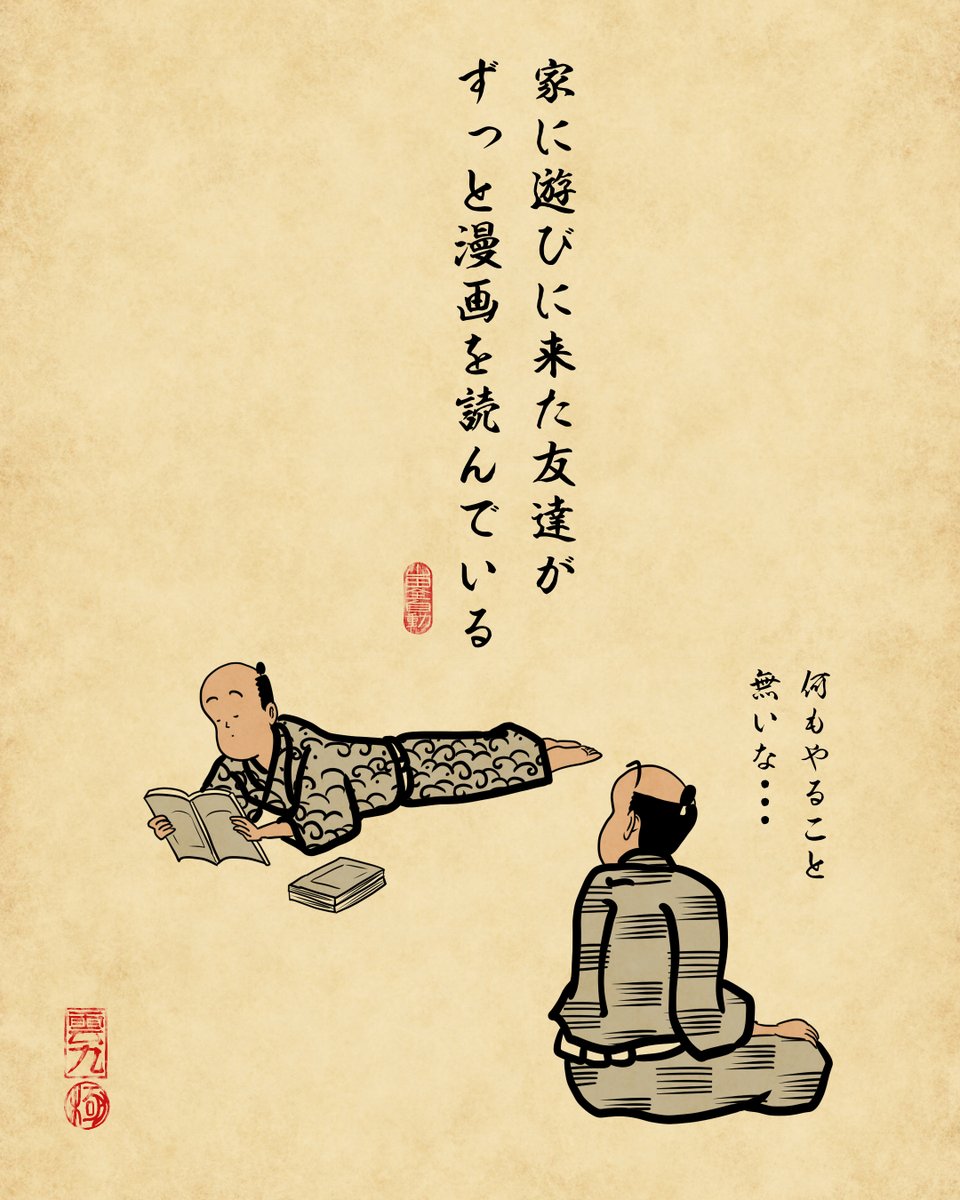 家に遊びに来た友達が
ずっと漫画を読んでいる
何もやること
無いな・・・